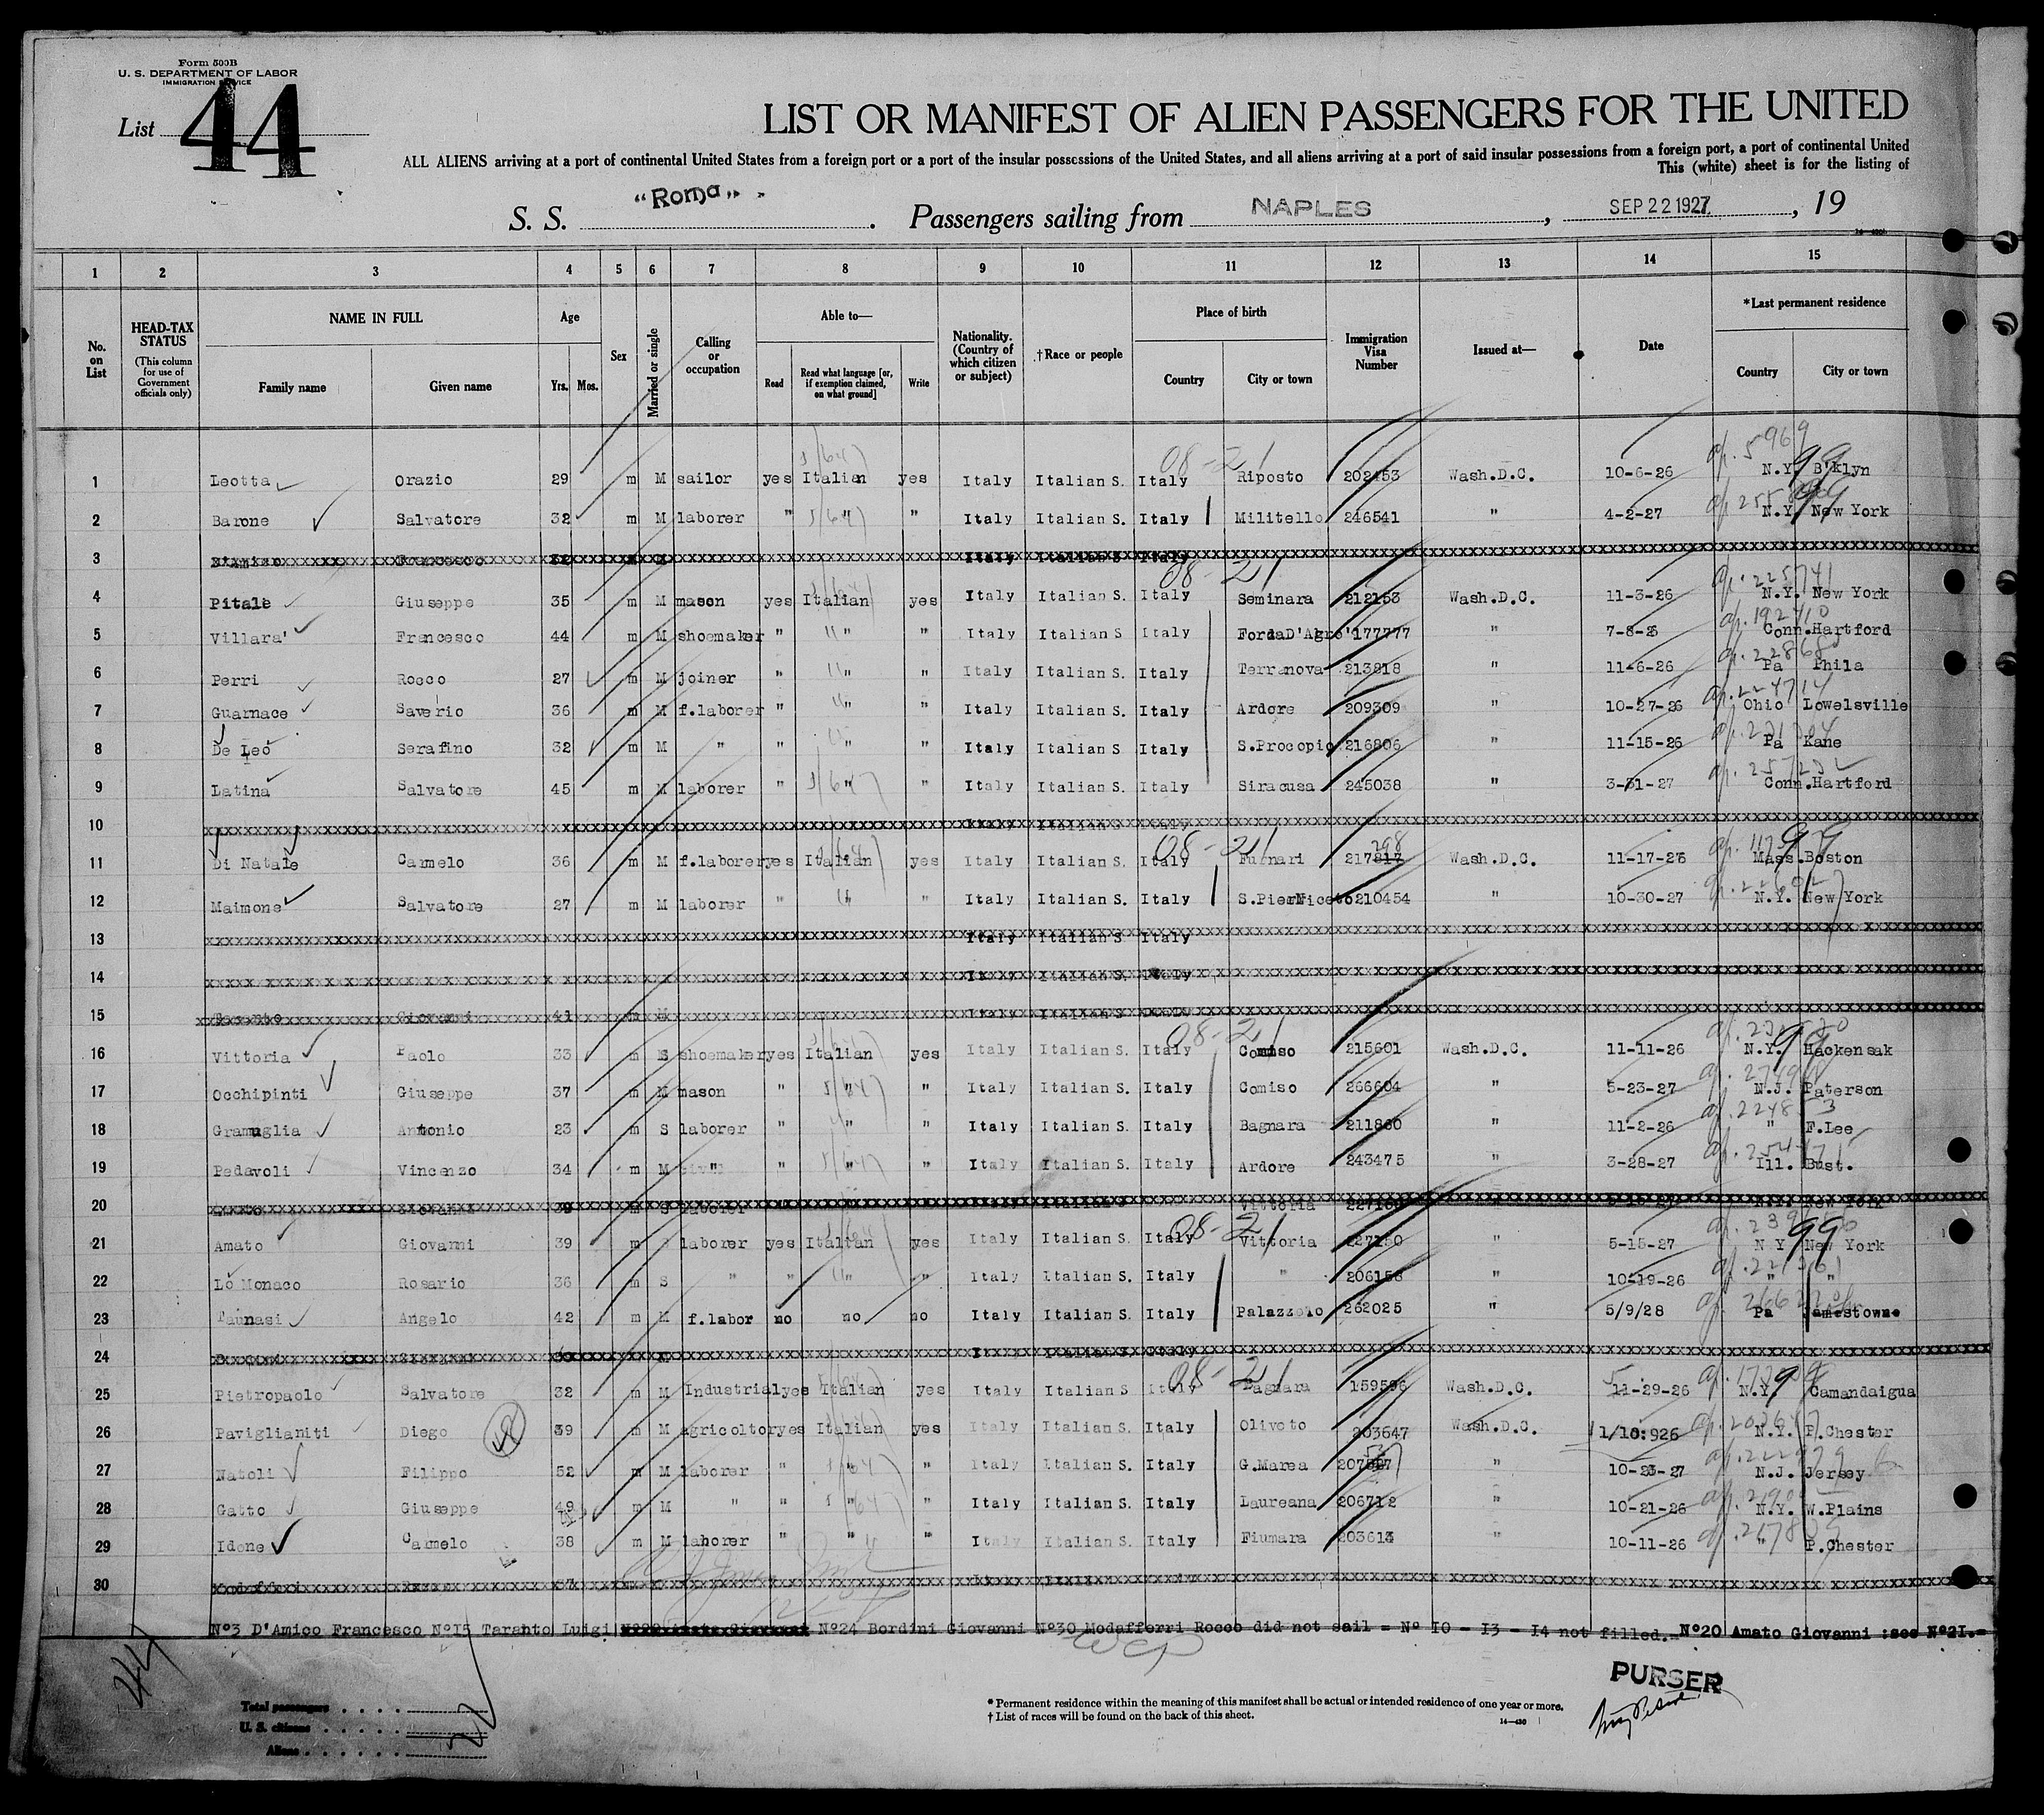 Form 500B
U. S. DEPARTMENT OF LABOR
IMMIGRATION SERVICE
List 44
LIST OR MANIFEST OF ALIEN PASSENGERS FOR THE UNITED
ALL ALIENS arriving at a port of continental United States from a foreign port or a port of the insular possessions of the United States, and all aliens arriving at a port of said insular possessions from a foreign port, a port of continental United
This (white) sheet is for the listing of
S. S. "Roma". Passengers sailing from NAPLES, SEP 22 1927, 19
1 2 3 4 5 6 7 8 9 10 11 12 13 14 15
No. on List
HEAD-TAX STATUS (This column for use of Government officials only)
NAME IN FULL
Family name Given name
Age
Yrs. Mos.
Sex
Married or single
Calling or occupation
Able to—
Read Read what language [or, if exemption claimed, on what ground] Write
Nationality. (Country of which citizen or subject)
†Race or people
Place of birth
Country City or town
Immigration Visa Number
Issued at—
Date
*Last permanent residence
Country City or town
1 Leotta Orazio 29 m M sailor yes Italian yes Italy Italian S. Italy Riposto 202453 Wash.D.C. 10-6-26 N.Y. B'klyn
2 Barone Salvatore 32 m M laborer " " " Italy Italian S. Italy Militello 246541 " 4-2-27 N.Y. New York
3 Francesco 32 m M Italy Italian S Italy
4 Pitale Giuseppe 35 m M mason yes Italian yes Italy Italian S. Italy Seminara 212153 Wash.D.C. 11-3-26 N.Y. New York
5 Villara' Francesco 44 m M shoemaker " " " Italy Italian S Italy FordaD'Agro' 177777 " 7-8-26 Conn. Hartford
6 Perri Rocco 27 m M joiner " " " Italy Italian S. Italy Terranova 213818 " 11-6-26 Pa Phila
7 Guarnace Saverio 36 m M f.laborer " " " Italy Italian S. Italy Ardore 209309 " 10-27-26 Ohio Lowelsville
8 De Leo Serafino 32 m M " " " " Italy Italian S Italy S.Procopio 216806 " 11-15-26 Pa Kane
9 Latina Salvatore 45 m M laborer " " " Italy Italian S. Italy Siracusa 245038 " 3-31-27 Conn. Hartford
10 Italy Italian S Italy
11 Di Natale Carmelo 36 m M f.laborer yes Italian yes Italy Italian S. Italy Furnari 217817 298 Wash.D.C. 11-17-26 Mass. Boston
12 Maimone Salvatore 27 m M laborer " " " Italy Italian S. Italy S.PierNiceto 210454 " 10-30-27 N.Y. New York
13 Italy Italian S Italy
14 Italy Italian S. Italy
15 Taranto Giovanni 41 m M Italy Italian S. Italy
16 Vittoria Paolo 33 m S shoemaker yes Italian yes Italy Italian S. Italy Comiso 215601 Wash.D.C. 11-11-26 N.Y. Hackensak
17 Occhipinti Giuseppe 37 m M mason " " " Italy Italian S. Italy Comiso 266604 " 5-23-27 N.J. Paterson
18 Gramuglia Antonio 23 m S laborer " " " Italy Italian S. Italy Bagnara 211860 " 11-2-26 " F.Lee
19 Pedavoli Vincenzo 34 m M " " " " Italy Italian S. Italy Ardore 243475 " 3-28-27 Ill. Bust.
20 Amato Giovanni 39 m S laborer Italian S Vittoria N.Y. New York
21 Amato Giovanni 39 m S laborer yes Italian yes Italy Italian S. Italy Vittoria 227150 " 5-15-27 N Y New York
22 Lo Monaco Rosario 36 m S " " " " Italy Italian S. Italy " 206158 " 10-19-26 " "
23 Angelo 42 m M f.labor no no no Italy Italian S. Italy Palazzolo 262025 " 5/9/28 Pa Jamestowne
24 Italy Italian S. Italy
25 Pietropaolo Salvatore 32 m M Industrial yes Italian yes Italy Italian S Italy Bagnara 159596 Wash.D.C. 11-29-26 N.Y. Camandaigua
26 Paviglianiti Diego 39 m M agricoltor yes Italian yes Italy Italian S. Italy Oliveto 203647 Wash.D.C. 1/10:926 N.Y. P.Chester
27 Natoli Filippo 52 m M laborer " " " Italy Italian S. Italy G.Marea " 10-23-27 N.J. Jersey
28 Gatto Giuseppe 49 m M " " " " Italy Italian S. Italy Laureana 206712 " 10-21-26 N.Y. W.Plains
29 Idone Carmelo 38 m M laborer " " " Italy Italian S. Italy Fiumara 203613 " 10-11-26 " P.Chester
30 Modafferi Rocco
Nº3 D'Amico Francesco Nº15 Taranto Luigi Nº24 Bordini Giovanni Nº30 Modafferri Rocco did not sail = Nº 10 - 13 - 14 not filled.- Nº20 Amato Giovanni :see Nº21.-
44
Total passengers
U. S. citizens
Aliens
* Permanent residence within the meaning of this manifest shall be actual or intended residence of one year or more.
† List of races will be found on the back of this sheet.
14—430
PURSER